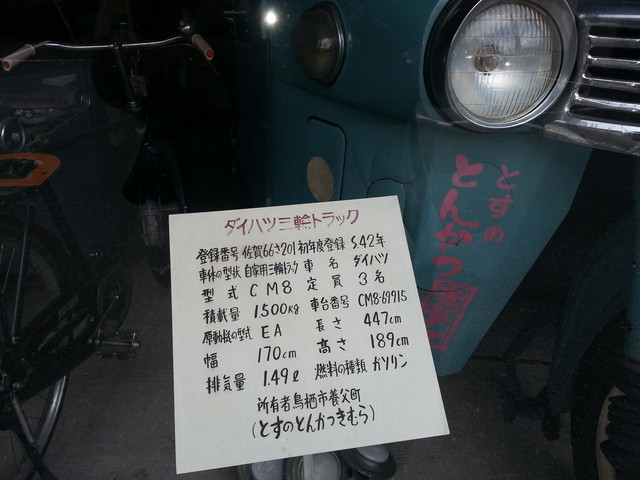 とすの
とんかつ
ダイハツ三輪トラック
登録番号 佐賀66さ201 初年度登録 S.42年
車体の型状 自家用三輪トラック 車名 ダイハツ
型式 CM8 定員 3名
積載量 1500kg 車台番号 CM8-69915
原動機の型式 EA 長さ 447cm
幅 170cm 高さ 189cm
排気量 1.49ℓ 燃料の種類 ガソリン
所有者鳥栖市養父町
(とすのとんかつきむら)